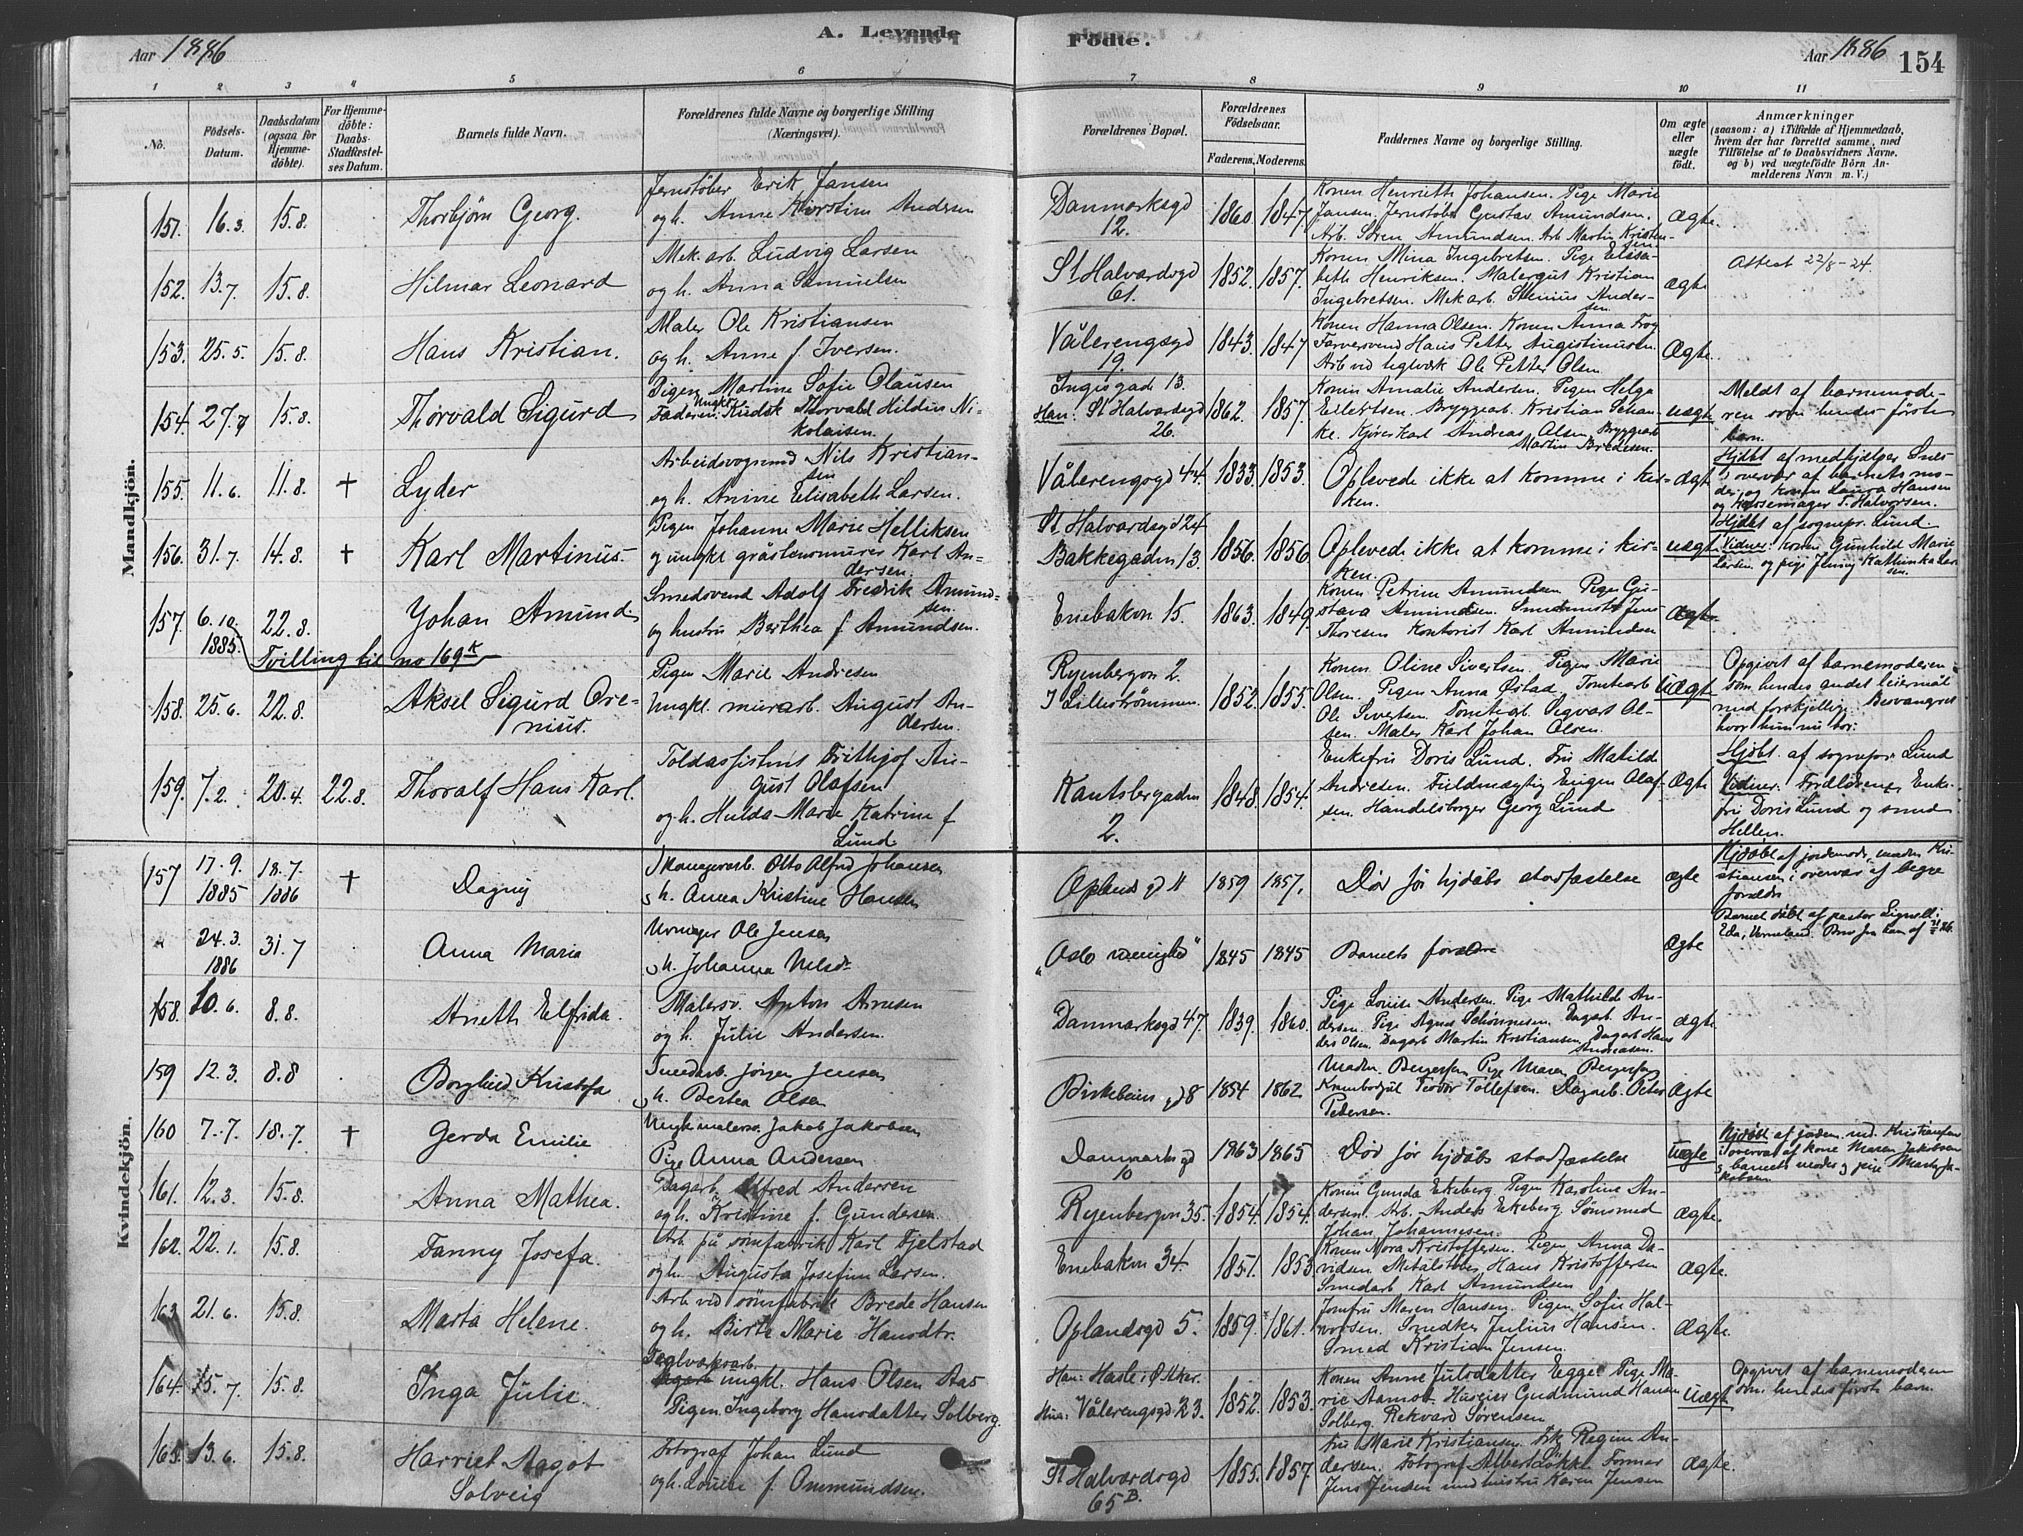 Aar 1886
A. Levende
Födte.
Aar 1886
154
1 2 3 4 5 6 7 8 9 10 11
No.
Födsels-Datum.
Daabsdatum (ogsaa for Hjemme-döbte).
For Hjemme-döbte: Daabs Stadfæstel-ses Datum.
Barnets fulde Navn.
Forældrenes fulde Navne og borgerlige Stilling (Næringsvei).
Forældrenes Bopæl.
Forældrenes Födselsaar.
Faderens. Moderens.
Faddernes Navne og borgerlige Stilling.
Om ægte eller uægte födt.
Anmærkninger
(saasom: a) i Tilfælde af Hjemmedaab, hvem der har forrettet samme, med Tilföielse af to Daabsvidners Navne. og b) ved uægtefödte Börn Anmelderens Navn m. V.)
Mandkjön.
151. 16.3. 15.8. Thorbjørn Georg.
Jernstøber Erik Jansen
og h. Anne Kirstine Andersen
Danmarksgd 12. 1860. 1847.
Konen Henriette Johansen. Pige Marie
Jansen. Jernstøber Gustav Amundsen.
Arb. Søren Amundsen. Arb Martin Kristensen
Ægte.
152. 13.7. 15.8. Hilmar Leonard
Mek. arb. Ludvig Larsen
og h. Anna Samuelsen
St Halvardsgd 61. 1852. 1857.
Konen Mina Ingebretsen. Pige Elisa-
beth Henriksen. Malergut Kristian
Ingebretsen. Mek arb. Stenius Ander-
sen.
ægte
Attest 22/8-24.
153. 25.5. 15.8. Hans Kristian.
Maler Ole Kristiansen
og h. Anne f. Iversen.
Vålerengsgd 19. 1843. 1847
Konen Hanna Olsen. Konen Anna Frog
Farversvend Hans Petter Augustinusen.
Arb ved teglværk Ole Petter Olsen
Ægte.
154. 27.7 15.8. Thorvald Sigurd
Pigen Martine Sofie Olausen
Faderen: Ungk. Kudsk Thorvald Hildus Ni-
kolaisen.
Ingisgade 13.
Han: St Halvardsgd 26. 1862. 1857.
Konen Amalie Andersen. Pigen Helga
Eilertsen. Bryggearb. Kristian Schan-
ke. Kjørerkarl Andreas Olsen. Bryggearb
Martin Bredesen.
uægte
Meldt af barnemode-
ren som hendes første
barn.
155. 11.6. 11.8. + Lyder
Arbeidsvognmd Nils Kristian-
sen
og h. Anine Elisabeth Larsen.
Vålerengsgd 44. 1833. 1853.
Oplevede ikke at komme i kir-
ken.
ægte
Hjdbt af medhjælper
i overvær af barnets mo-
der og konen Laura Hansen
og Kurvemager T. Halvorsen.
156. 31.7. 14.8. + Karl Martinus.
Pigen Johanne Marie Helliksen
og ungkl gråstensmurer Karl An-
dersen.
St Halvardsgd 24
Bakkegaden 13. 1856. 1856
Oplevede ikke at komme i kir-
ken.
uægte
Hjdbt af sognepr. Lund.
Vidner: konen Gunhild Marie
Larsen og pige Jenny Kathinka Lar-
sen.
157. 6.10. 1885. 22.8. Johan Amund
Smedsvend Adolf Fredrik Amund-
sen.
og hustru Berthea f. Amundsen.
Enebakvn 15. 1863. 1849.
Konen Petrine Amundsen. Pige Gu-
stava Amundsen. Smedmstr Jens
Thoresen Kontorist Karl Amundsen
ægte
Tvilling til no 169 K
158. 25.6. 22.8. Aksel Sigurd Ore-
nius.
Pigen Marie Andresen
Ungkl. murarb. August An-
dersen.
Ryenbergvn 2.
I Lillestrømmen. 1852. 1855.
Konen Oline Sivertsen. Pigen Marie
Olsen. Pigen Anna Østad. Tomtearb
Ole Sivertsen. Tomtearb. Sigvart Ol-
sen. Maler Karl Johan Olsen.
Uægte
Opgivet af barnemoderen
som hendes andet leiermål
med forskjellige. Besvangret
hvor hun nu bor.
159. 7.2. 20.4. 22.8. Thoralf Hans Karl.
Toldassistent Frithjof Au-
gust Olafsen
og h. Hulda Marie Katrine f
Lund.
Kantsbergaden 2. 1848. 1854.
Enkefru Doris Lund. Fru Matilde
Andresen. Fuldmægtig Eugen Olaf-
sen. Handelsborger Georg Lund
Ægte
Hjdbt. af sognepr Lund
Vidner: Forældrene, Enke-
fru Doris Lund og
Kvindekjön.
157 17.9. 1885 18.7. 1886 + Dagny
Otto Alfred Johansen
og h. Anna Kristine Hansen
Oplands gd 11 1859 1857.
Død før hjdåbs stadfæstelse
ægte
Hjdøbt af jordemode, madm Kri-
stiansen i overvær af begge
forældre
" 24.3. 1886 31.7 Anna Maria
Urmager Ole Jensen
og h. Johanna Nilsdr
"Oslo 1845 1845
Barnets forældre
Ægte
Barnet døbt af pastor Lignell i
Eda, Vermeland.
158. 10.6. 8.8. Aneth Elfrida.
Malersv. Anton Arnesen
og h. Julie Andersen.
Danmarksgd 47. 1839. 1860.
Pige Louise Andersen. Pige Mathilde An-
dersen. Pige Agnes Schönnesen. Dagarb. An-
ders Olsen. Dagarb Martin Kristiansen. Dagarb Hans
Andreasen.
ægte
159 12.3. 8.8 Borghild Kristofa
Smedarb. Jørgen Jensen
og h. Bertea Olsen
Birkebein gd 8 1854 1862
Madm. Bergersen Pige Maren Bergersen
Teodor Tollefsen. Dagarb. Peter
Pedersen.
Ægte
160 7.7. 18.7. + Gerda Emilie
Ungk malersv. Jakob Jakobsen
Pige Anna Andersen
Danmarks gd 10 1863 1865
Død før hjdåbs stadfæstelse
uægte
Hjdøbt af jordem. md. Kristiansen
i overvær af kone Maren Jakobsen
og barnets moder og pige
161. 12.3. 15.8. Anna Mathea.
Dagarb. Alfred Andersen
og h. Kristine f. Gundersen.
Ryenbergvn 35. 1854. 1854.
Konen Gunda Ekeberg. Pigen Karoline An-
dersen. Arb. Anders Ekeberg. Sømsmed
Johan Johannesen.
Ægte.
162. 22.1. 15.8. Fanny Josefa.
Arb. på sømfabrik Karl Fjelstad
og h. Augusta Josefine Larsen.
Enebakvn 34. 1851. 1853
Konen Nora Kristoffersen. Pigen Anna Da-
vidsen. Metalstøber Hans Kristoffersen
Smedarb Karl Amundsen
Ægte.
163 21.6. 15.8. Marta Helene.
Arb. ved sømfabrik Brede Hansen
og h. Birte Marie Hansdtr.
Oplandsgd 5. 1859. 1861.
Jomfru Maren Hansen. Pigen Sofie Hal-
vorsen. Smedker Julius Hansen.
Smed Kristian Jensen.
Ægte.
164. 15.7. 15.8. Inga Julie.
Teglværksarb.
ungkl. Hans Olsen Aas
Pigen Ingeborg Hansdatter Solberg.
Han: Hasle i Ø. Aker.
Hun: Vålerengsgd 23. 1852. 1853.
Konen Anne Julsdatter Egge. Pige Ma-
rie Aamot. Huseier Gudmund Hansen
Solberg Rekvard Sørensen
Uægte
Opgivet af barnemoderen
som hendes første barn.
165. 13.6. 15.8. Harriet Aagot
Solveig
Fotograf Johan Lund
og h. Louise f. Ommundsen.
St Halvardsgd 65 B. 1855. 1857.
Fru Marie Kristiansen. Frk Regine An-
dersen. Fotograf Albert Løkke. Former
Jens Jensen med hustru Karen Jensen
Ægte.